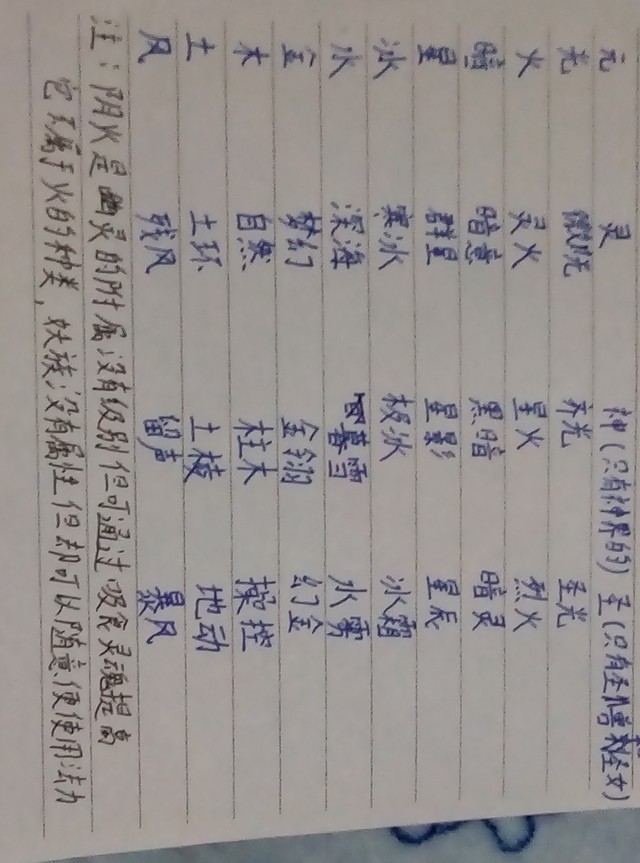 元 灵 神(只有神界的) 圣(只有圣 和圣女)
光 微晄 齐光 圣光
火 灵火 星火 烈火
暗 暗意 黑暗 暗灵
星 群星 星影 星辰
冰 寒冰 极冰 冰霜
水 深海 暮雪 水雾
金 梦幻 金翎 幻金
木 自然 柱木 操控
土 土环 土棱 地动
风 残风 留声 暴风
注:阴火是幽灵的附属没有级别但可通过吸食灵魂提高
它不属于火的种类,妖族没有属性但却可以随意便使用法力